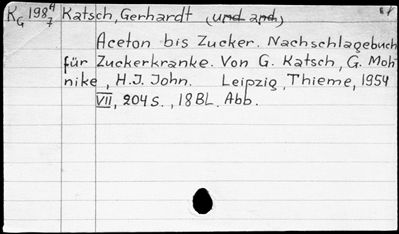 K G 198 4/7 Katsch, Gerhardt (und and.)
Aceton bis Zucker. Nachschlagebuch
für Zuckerkranke. Von G. Katsch, G. Moh-
nike, H.J. John. Leipzig, Thieme, 1954
VII, 204 S., 18 BL. Abb.